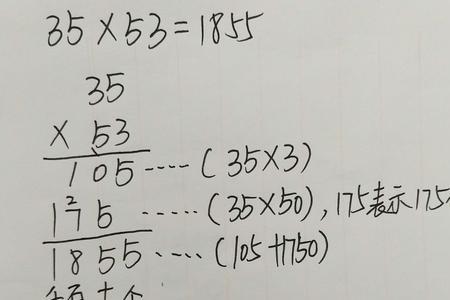 35×53=1855
35
× 53
105 ---- (35×3)
175 ----- (35×50), 175表示175
1855 ---- (105+1750)